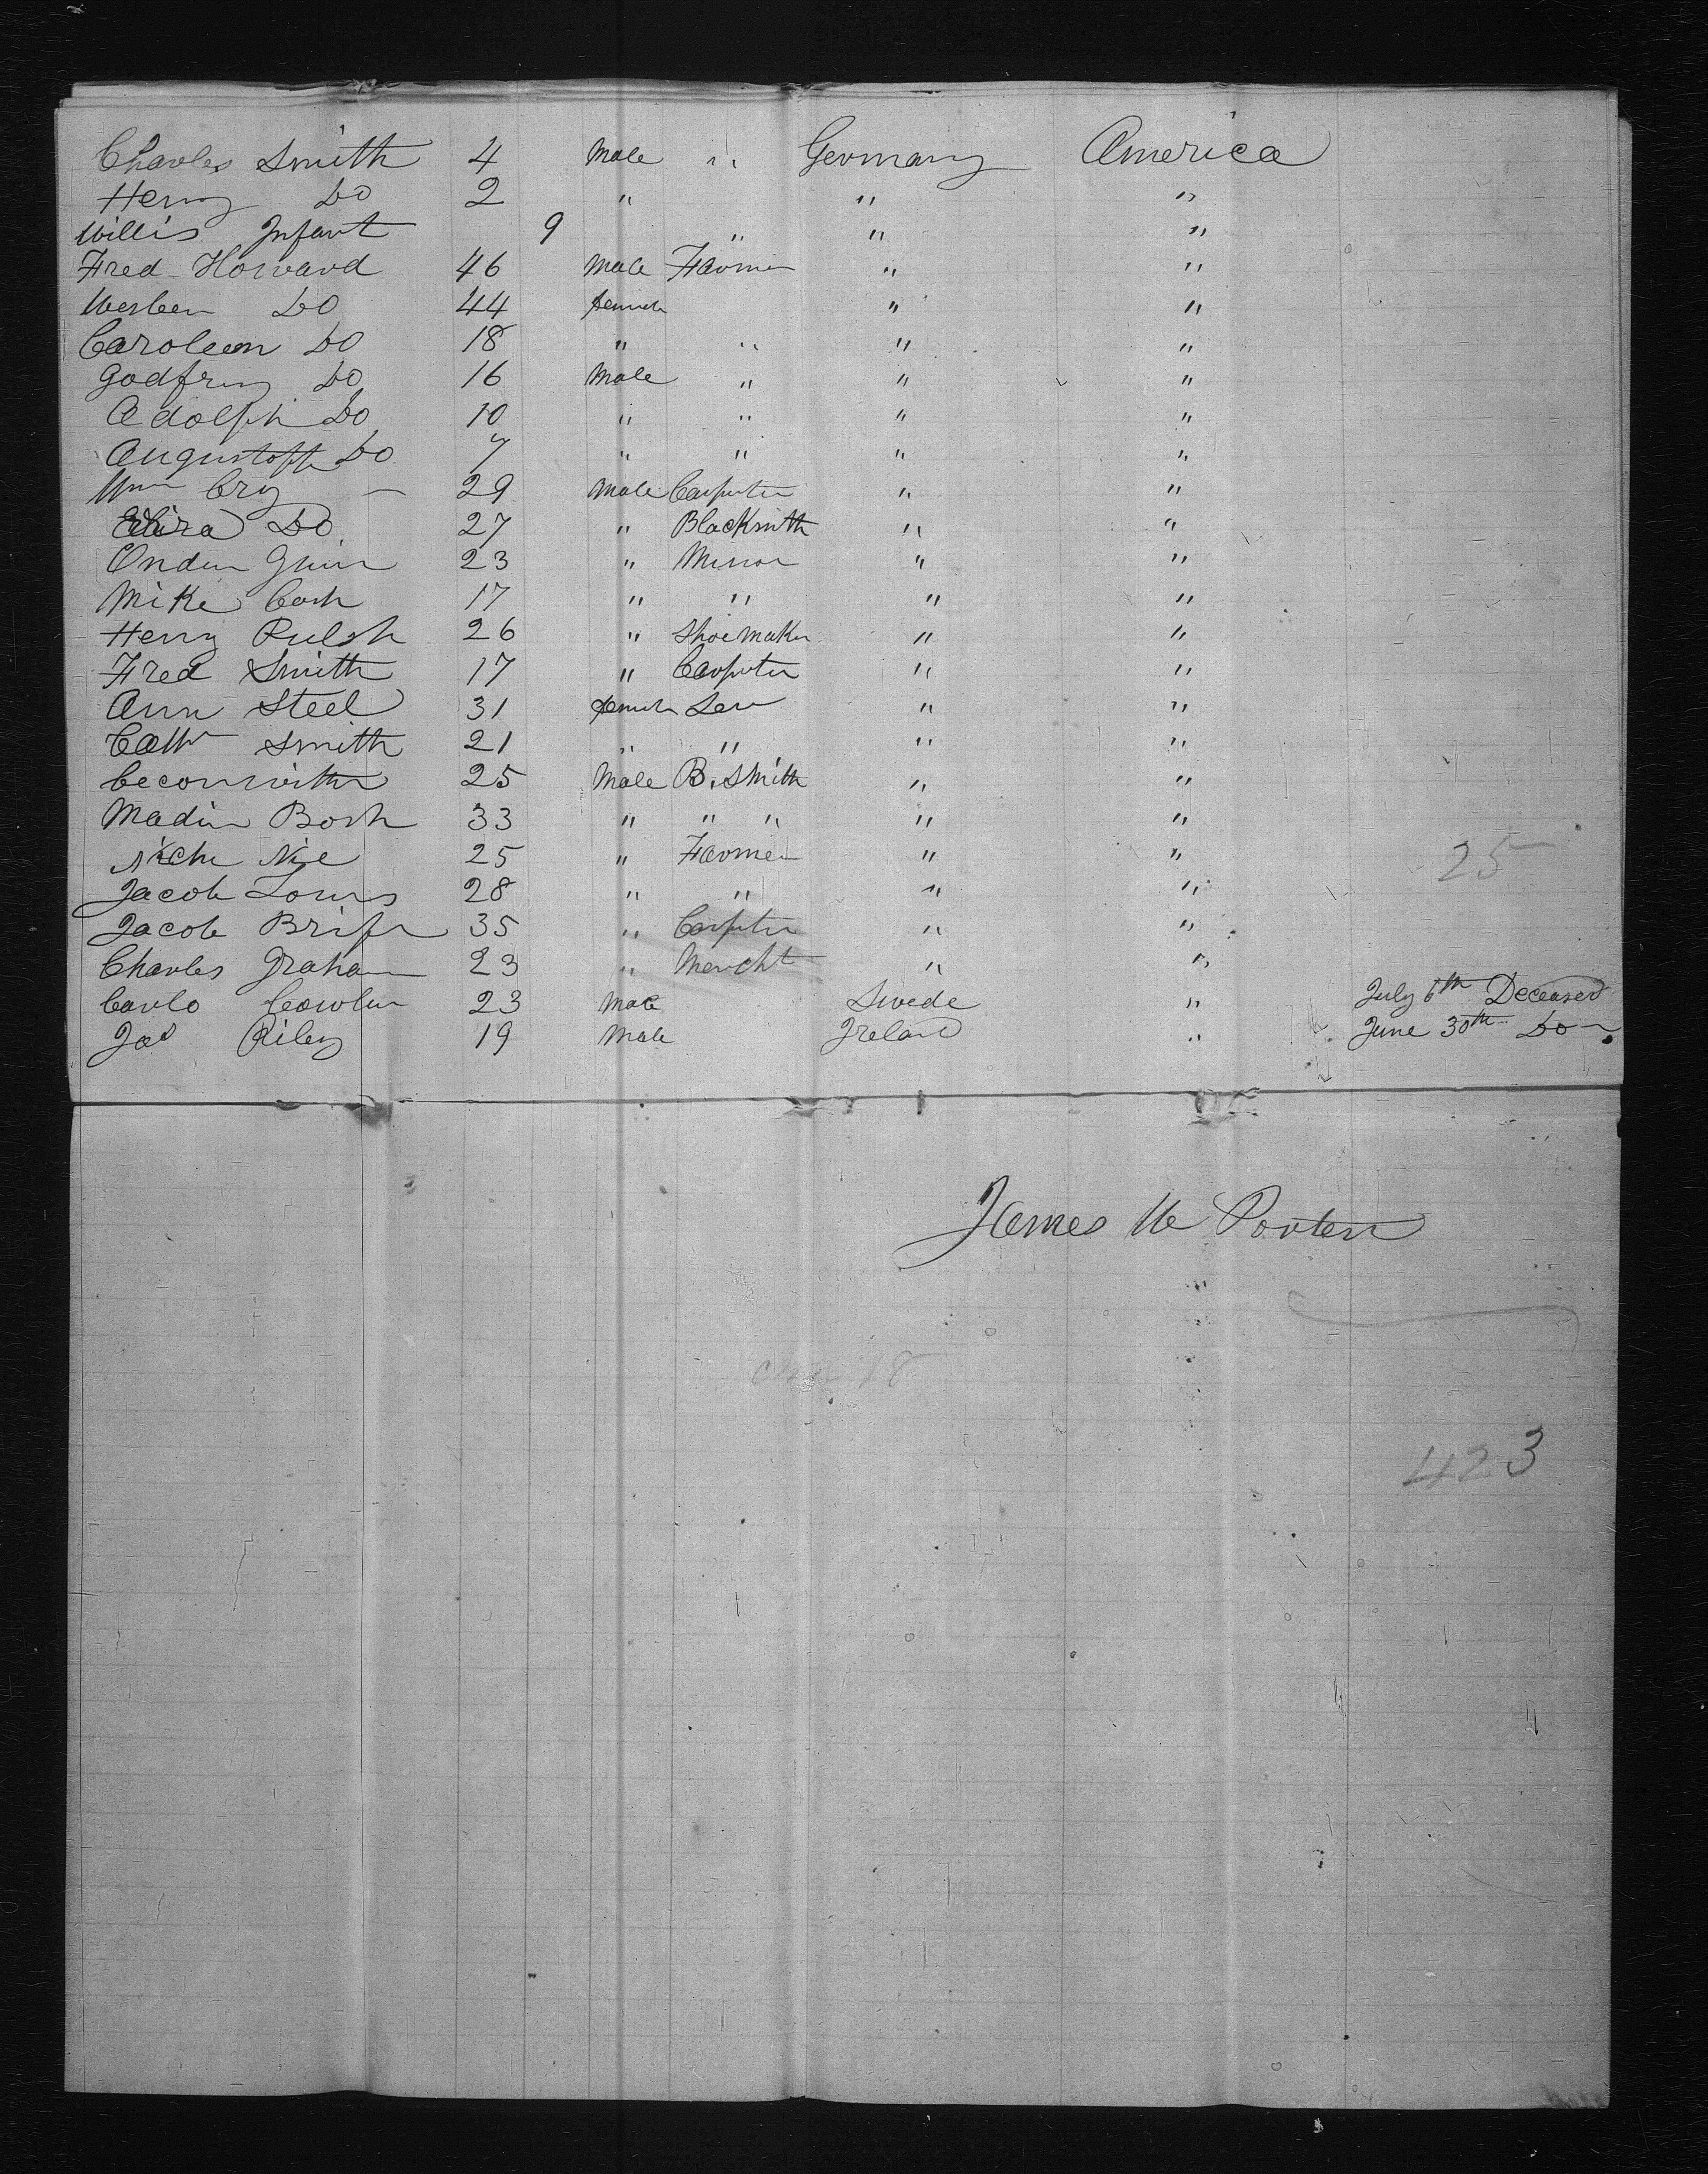 Charles Smith 4 Male " Germany America
Henry Do 2 " " "
Willis Infant 9 " " "
Fred Howard 46 Male Farmer " "
Werleen Do 44 female " "
Caroleen Do 18 " " " "
Godfrey Do 16 Male " " "
Adolph Do 10 " " " "
Augustoff Do 7 " " " "
Wm Cry — 29 Male Carpenter " "
Do 27 " Blacksmith " "
Guin 23 " Minor " "
Mike Cash 17 " " " "
Henry Rulsh 26 " Shoemaker " "
Fred Smith 17 " Carpenter " "
Ann Steel 31 female Serv " "
Cathn Smith 21 " " " "
25 Male B. Smith " "
Madin Bosh 33 " " " " "
Nie 25 " Farmer " "
Jacob Louis 28 " " " "
Jacob 35 " Carpenter " "
Charles Graham 23 " Mercht " "
Carlo Cowlin 23 Male Swede " July 6th Deceased
Jas Riley 19 Male Ireland " June 30th Do
25
James W Porter
423